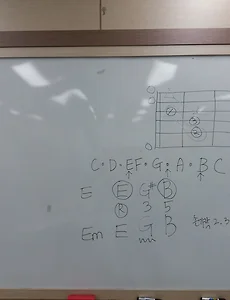 C • D • EF • G • A • B C
E E G# B
R 3 5
Em E G B